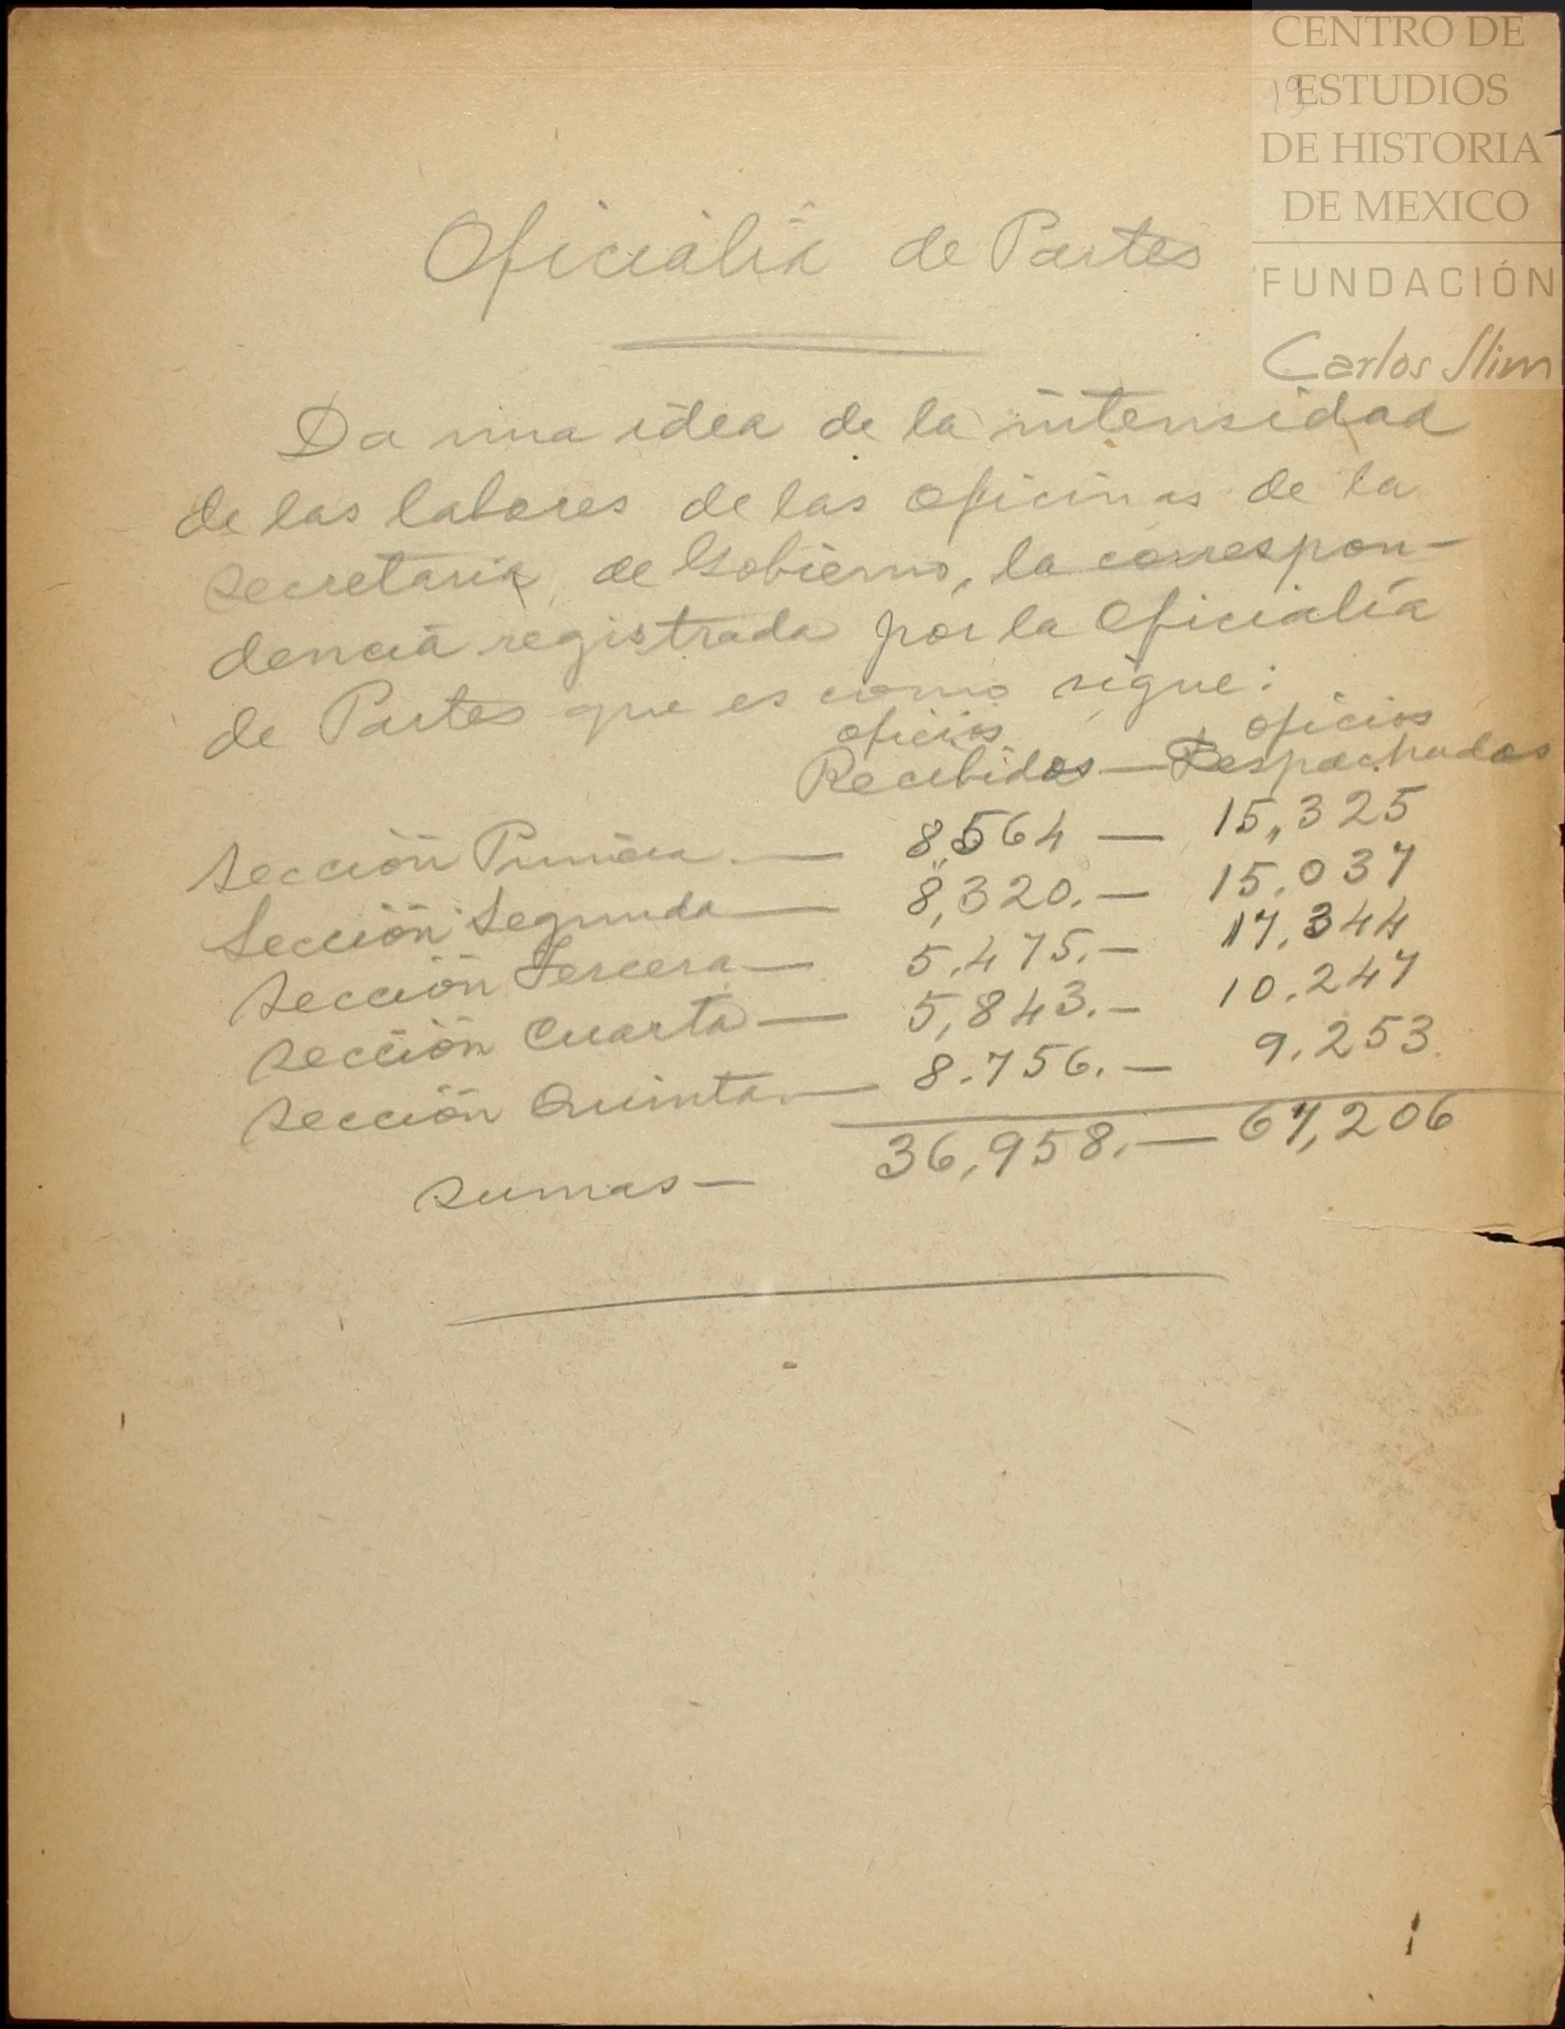 CENTRO DE
ESTUDIOS
DE HISTORIA
DE MEXICO
FUNDACIÓN
Carlos Slim
19
Oficialía de Partes
Da una idea de la intensidad
de las labores de las oficinas de la
secretaria, de Gobierno, la correspon-
dencia registrada por la Oficialía
de Partes que es como sigue:
oficios oficios
Recibidos — Despachados
Sección Primera. — 8,564 — 15,325
Sección Segunda — 8,320. — 15.037
Sección Tercera — 5.475. — 17.344
Sección Cuarta — 5,843. — 10.247
Sección Quinta. — 8.756. — 9.253.
36,958. — 67,206
Sumas —